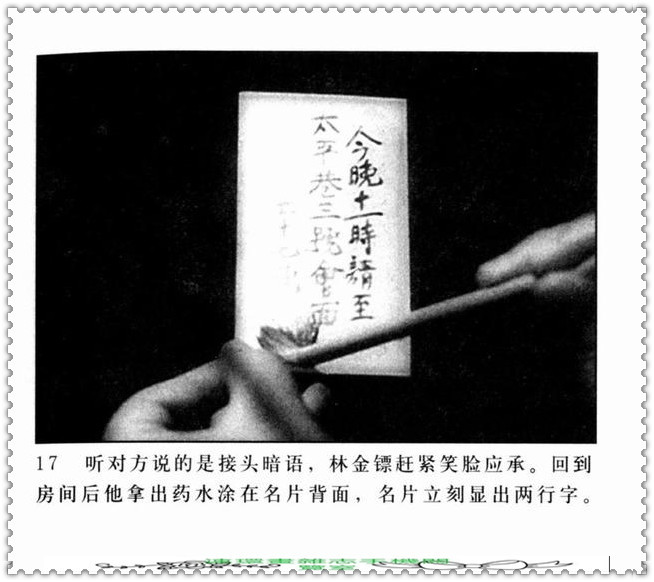 今晚十一時請至
太平巷三號會面
17 听对方说的是接头暗语，林金镖赶紧笑脸应承。回到
房间后他拿出药水涂在名片背面，名片立刻显出两行字。